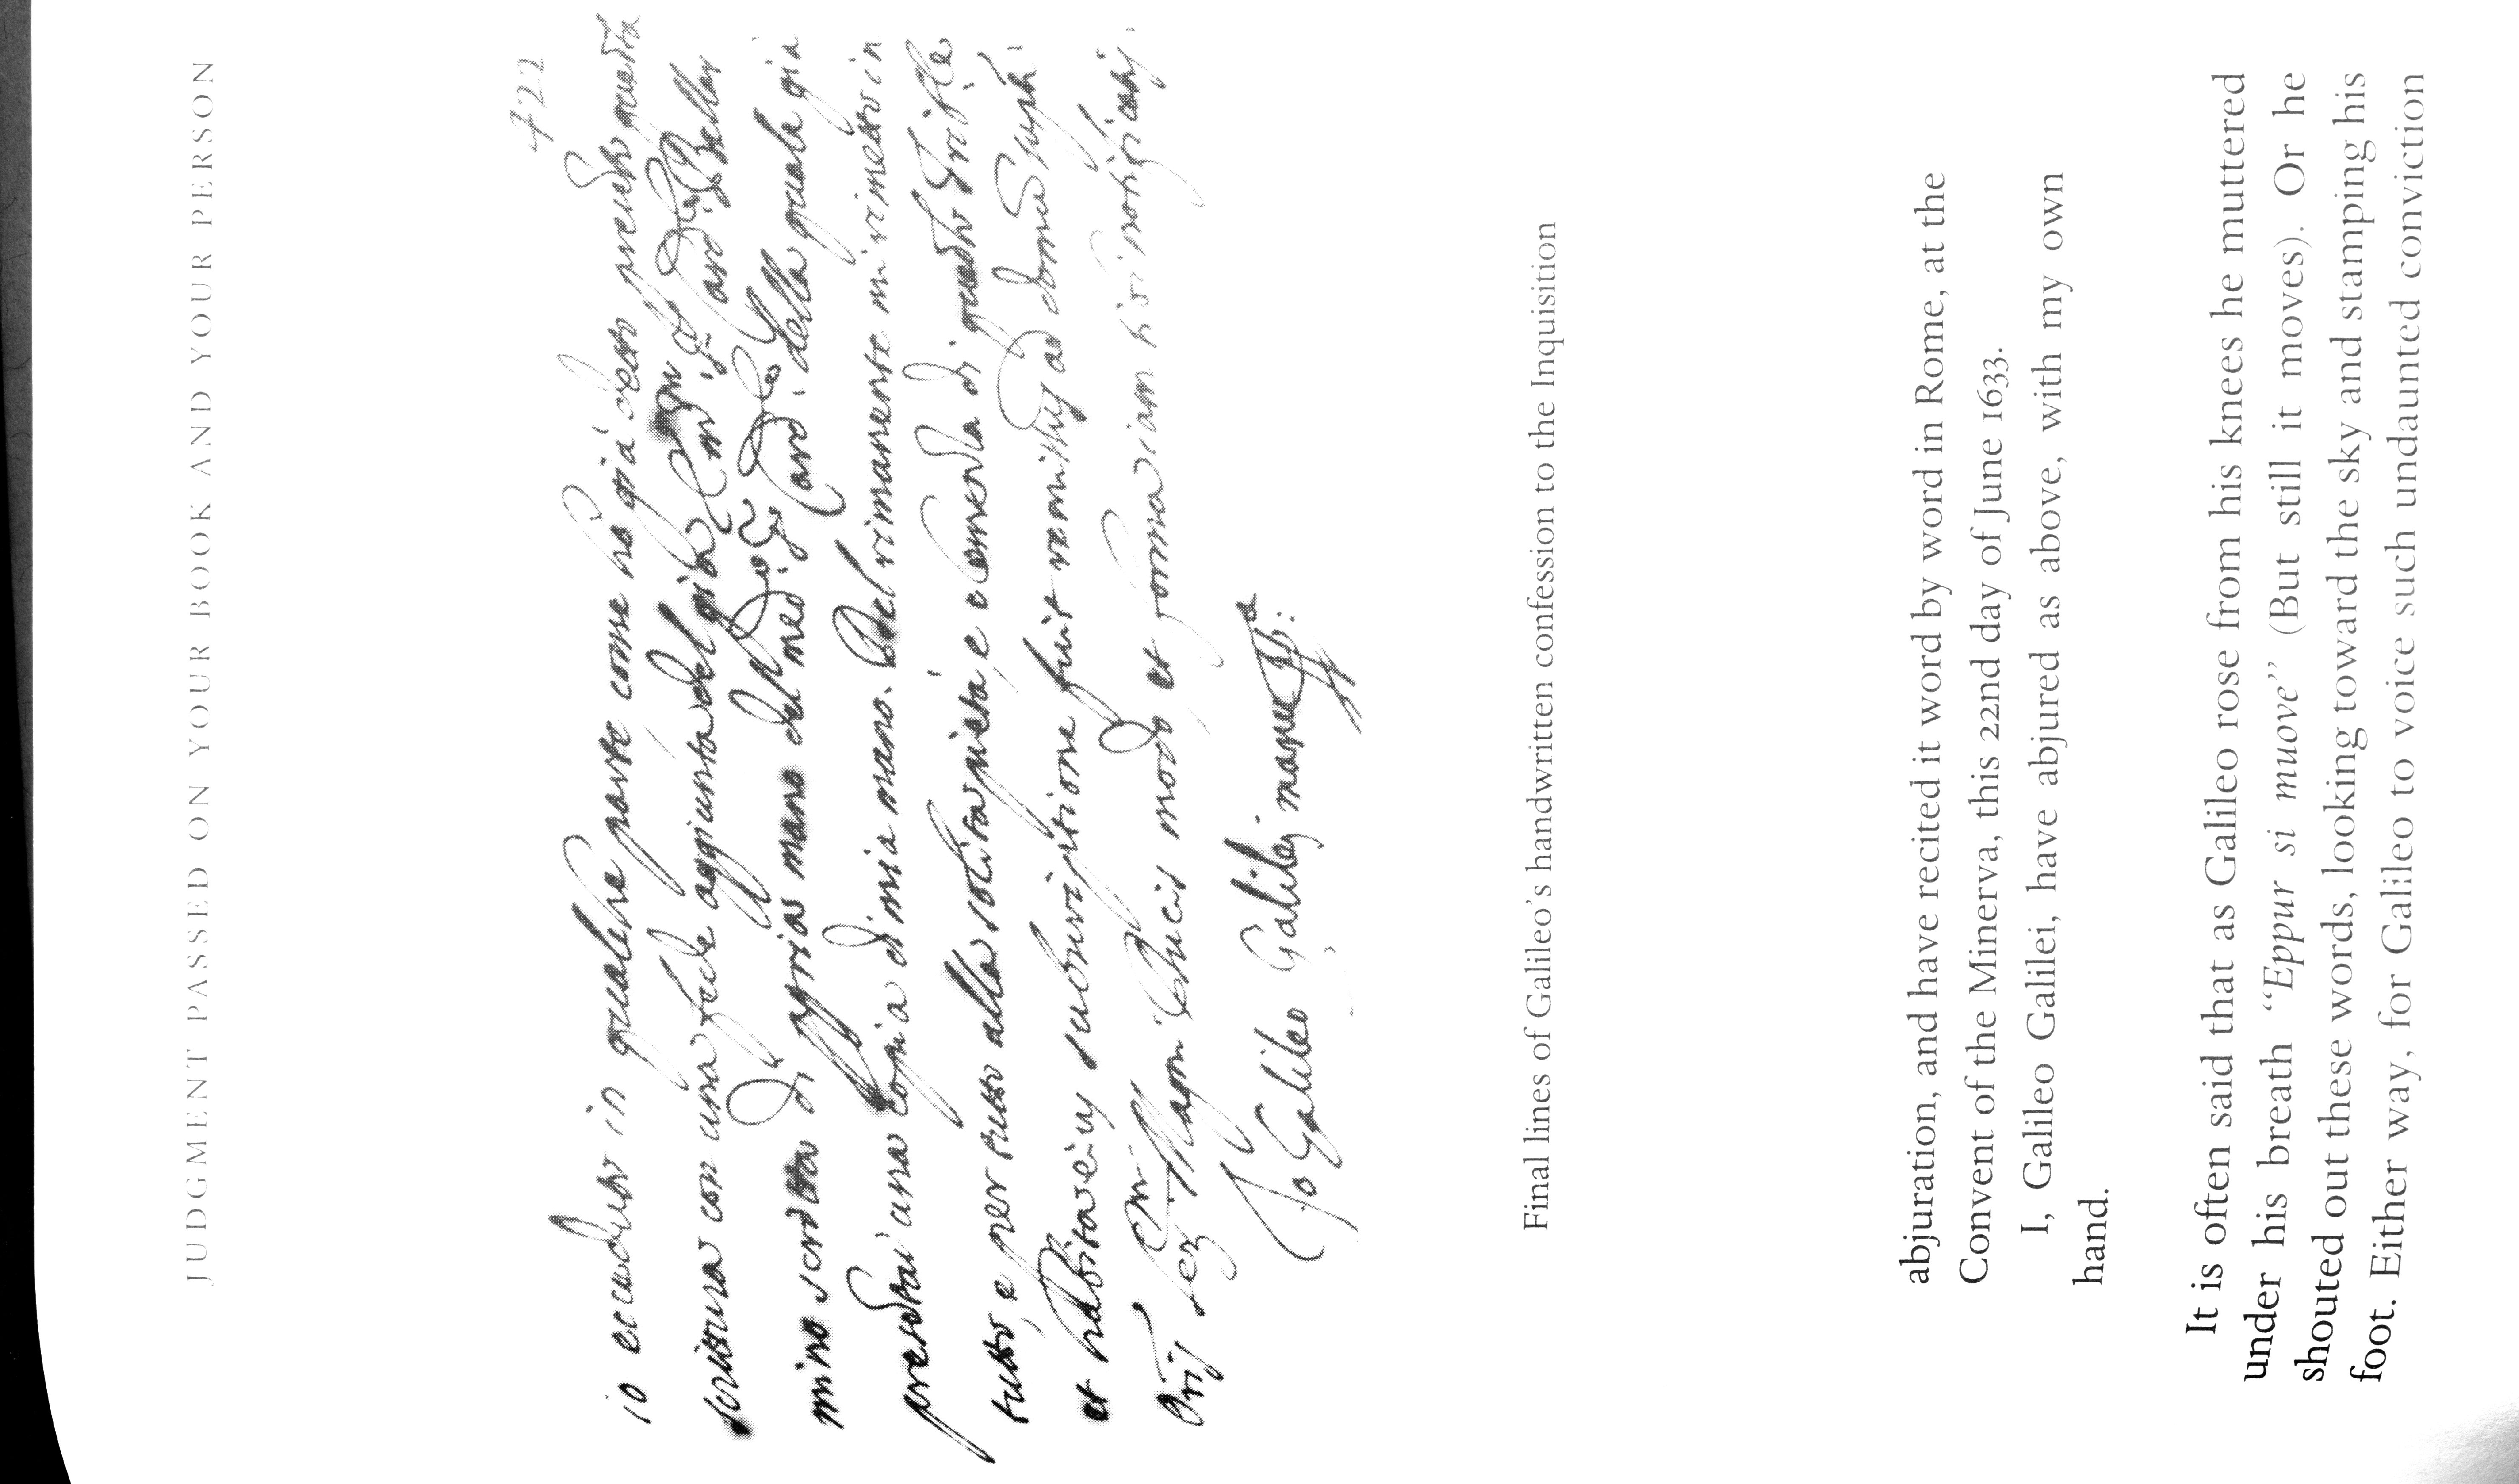 JUDGMENT PASSED ON YOUR BOOK AND YOUR PERSON
422
io ecceduto in qualche parte come ho già detto presento questa
scrittura con una fede aggiunta del già Card. Bellar
mino scritta di propria mano del med. Card. della quale già
presentai una copia di mia mano. Del rimanente mi rimetto in
tutto, e per tutto alla solita pietà, e clemenza di questo
et subscriptione fuit ad
Magni Ducis modo et forma iam sibi
Io Galileo Galilej manu
Final lines of Galileo's handwritten confession to the Inquisition
abjuration, and have recited it word by word in Rome, at the
Convent of the Minerva, this 22nd day of June 1633.
I, Galileo Galilei, have abjured as above, with my own
hand.
It is often said that as Galileo rose from his knees he muttered
under his breath “Eppur si muove” (But still it moves). Or he
shouted out these words, looking toward the sky and stamping his
foot. Either way, for Galileo to voice such undaunted conviction